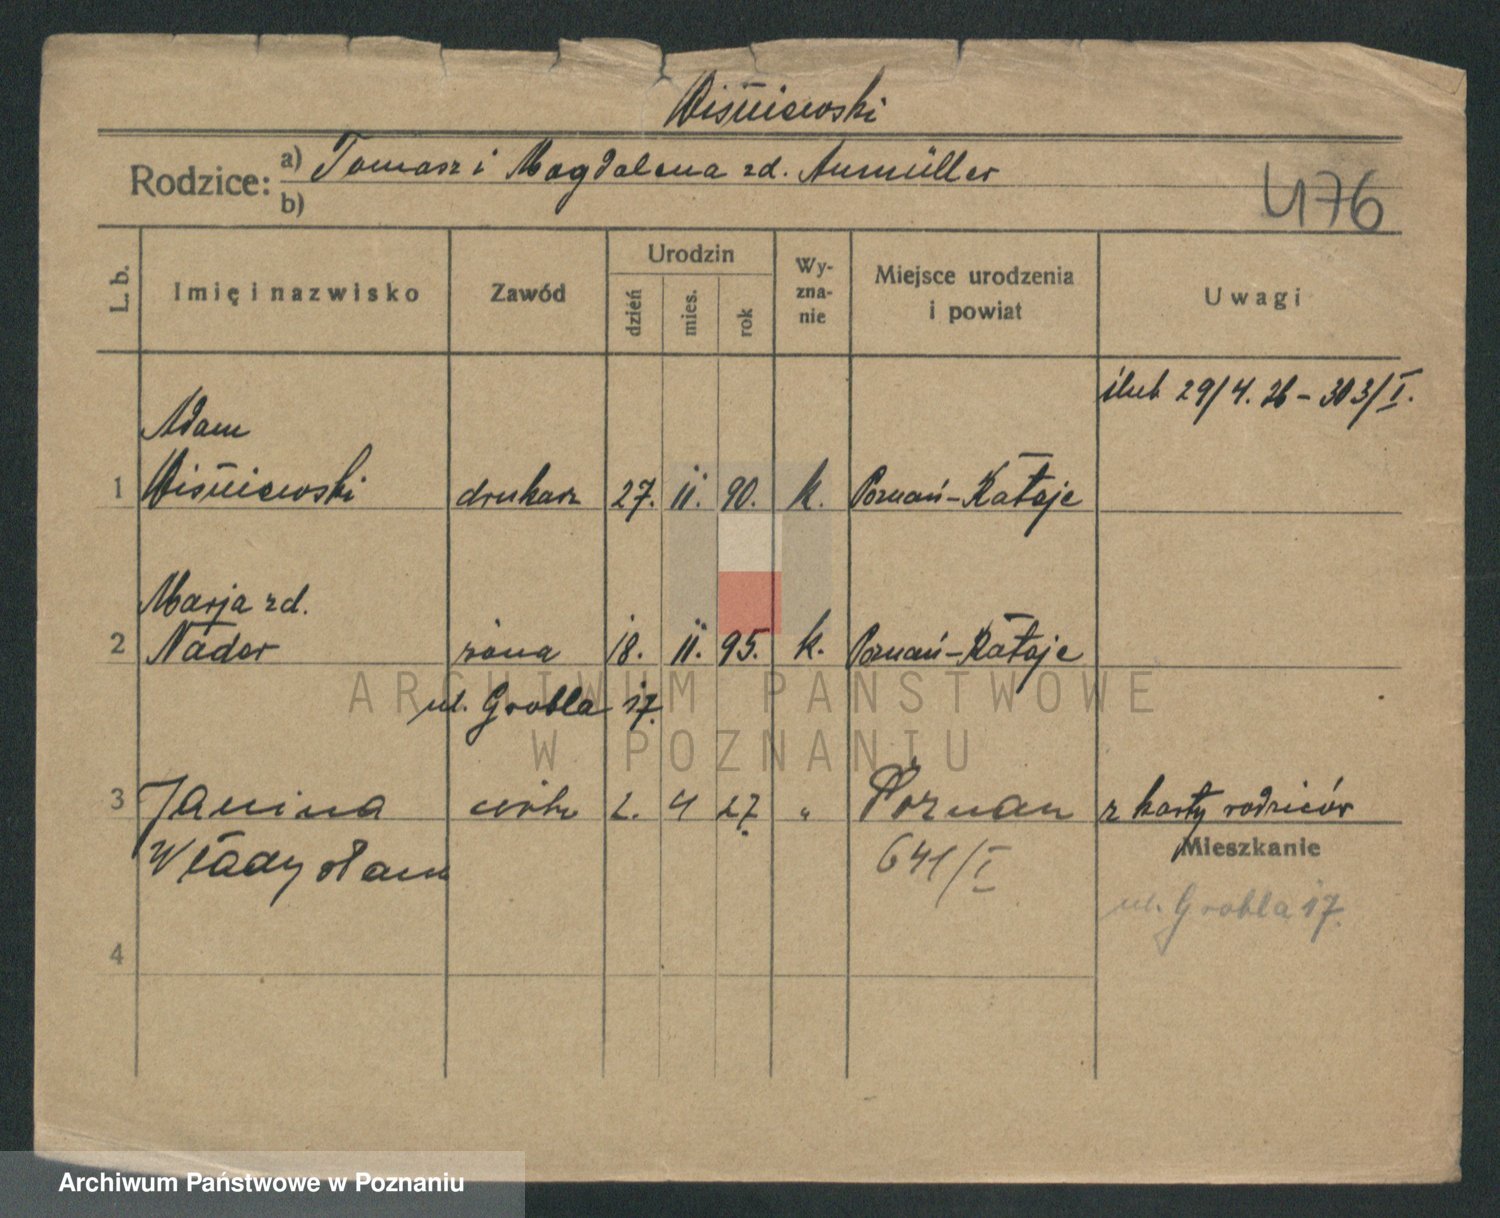 Wiśniewski
Rodzice: a) Tomasz i Magdalena zd. Aumüller
b)
476
L. b.
Imię i nazwisko
Zawód
Urodzin
dzień
mies.
rok
Wy-
zna-
nie
Miejsce urodzenia
i powiat
Uwagi
ślub 29/4. 26 – 303/I.
Adam
1 Wiśniewski drukarz 27. 11. 90. k. Poznań-Rataje
Marja zd.
2 Nader żona 18. 11. 95. k. Poznań-Rataje
ul. Grobla 17.
3 Janina córka 2. 4 27 " Poznań z karty rodziców
Władysława 641/I
Mieszkanie
ul. Grobla 17.
4
ARCHIWUM PAŃSTWOWE
W POZNANIU
Archiwum Państwowe w Poznaniu